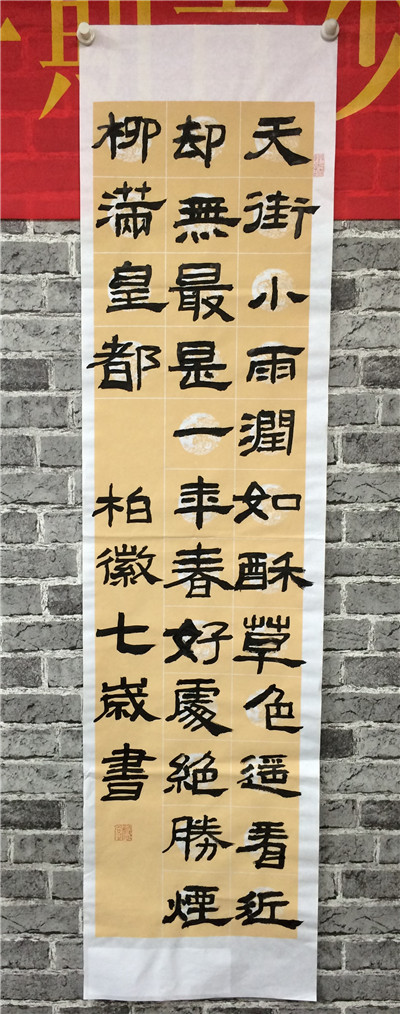 天街小雨潤如酥草色遥看近
却無最是一年春好處絶勝煙
柳滿皇都 柏徽七歲書